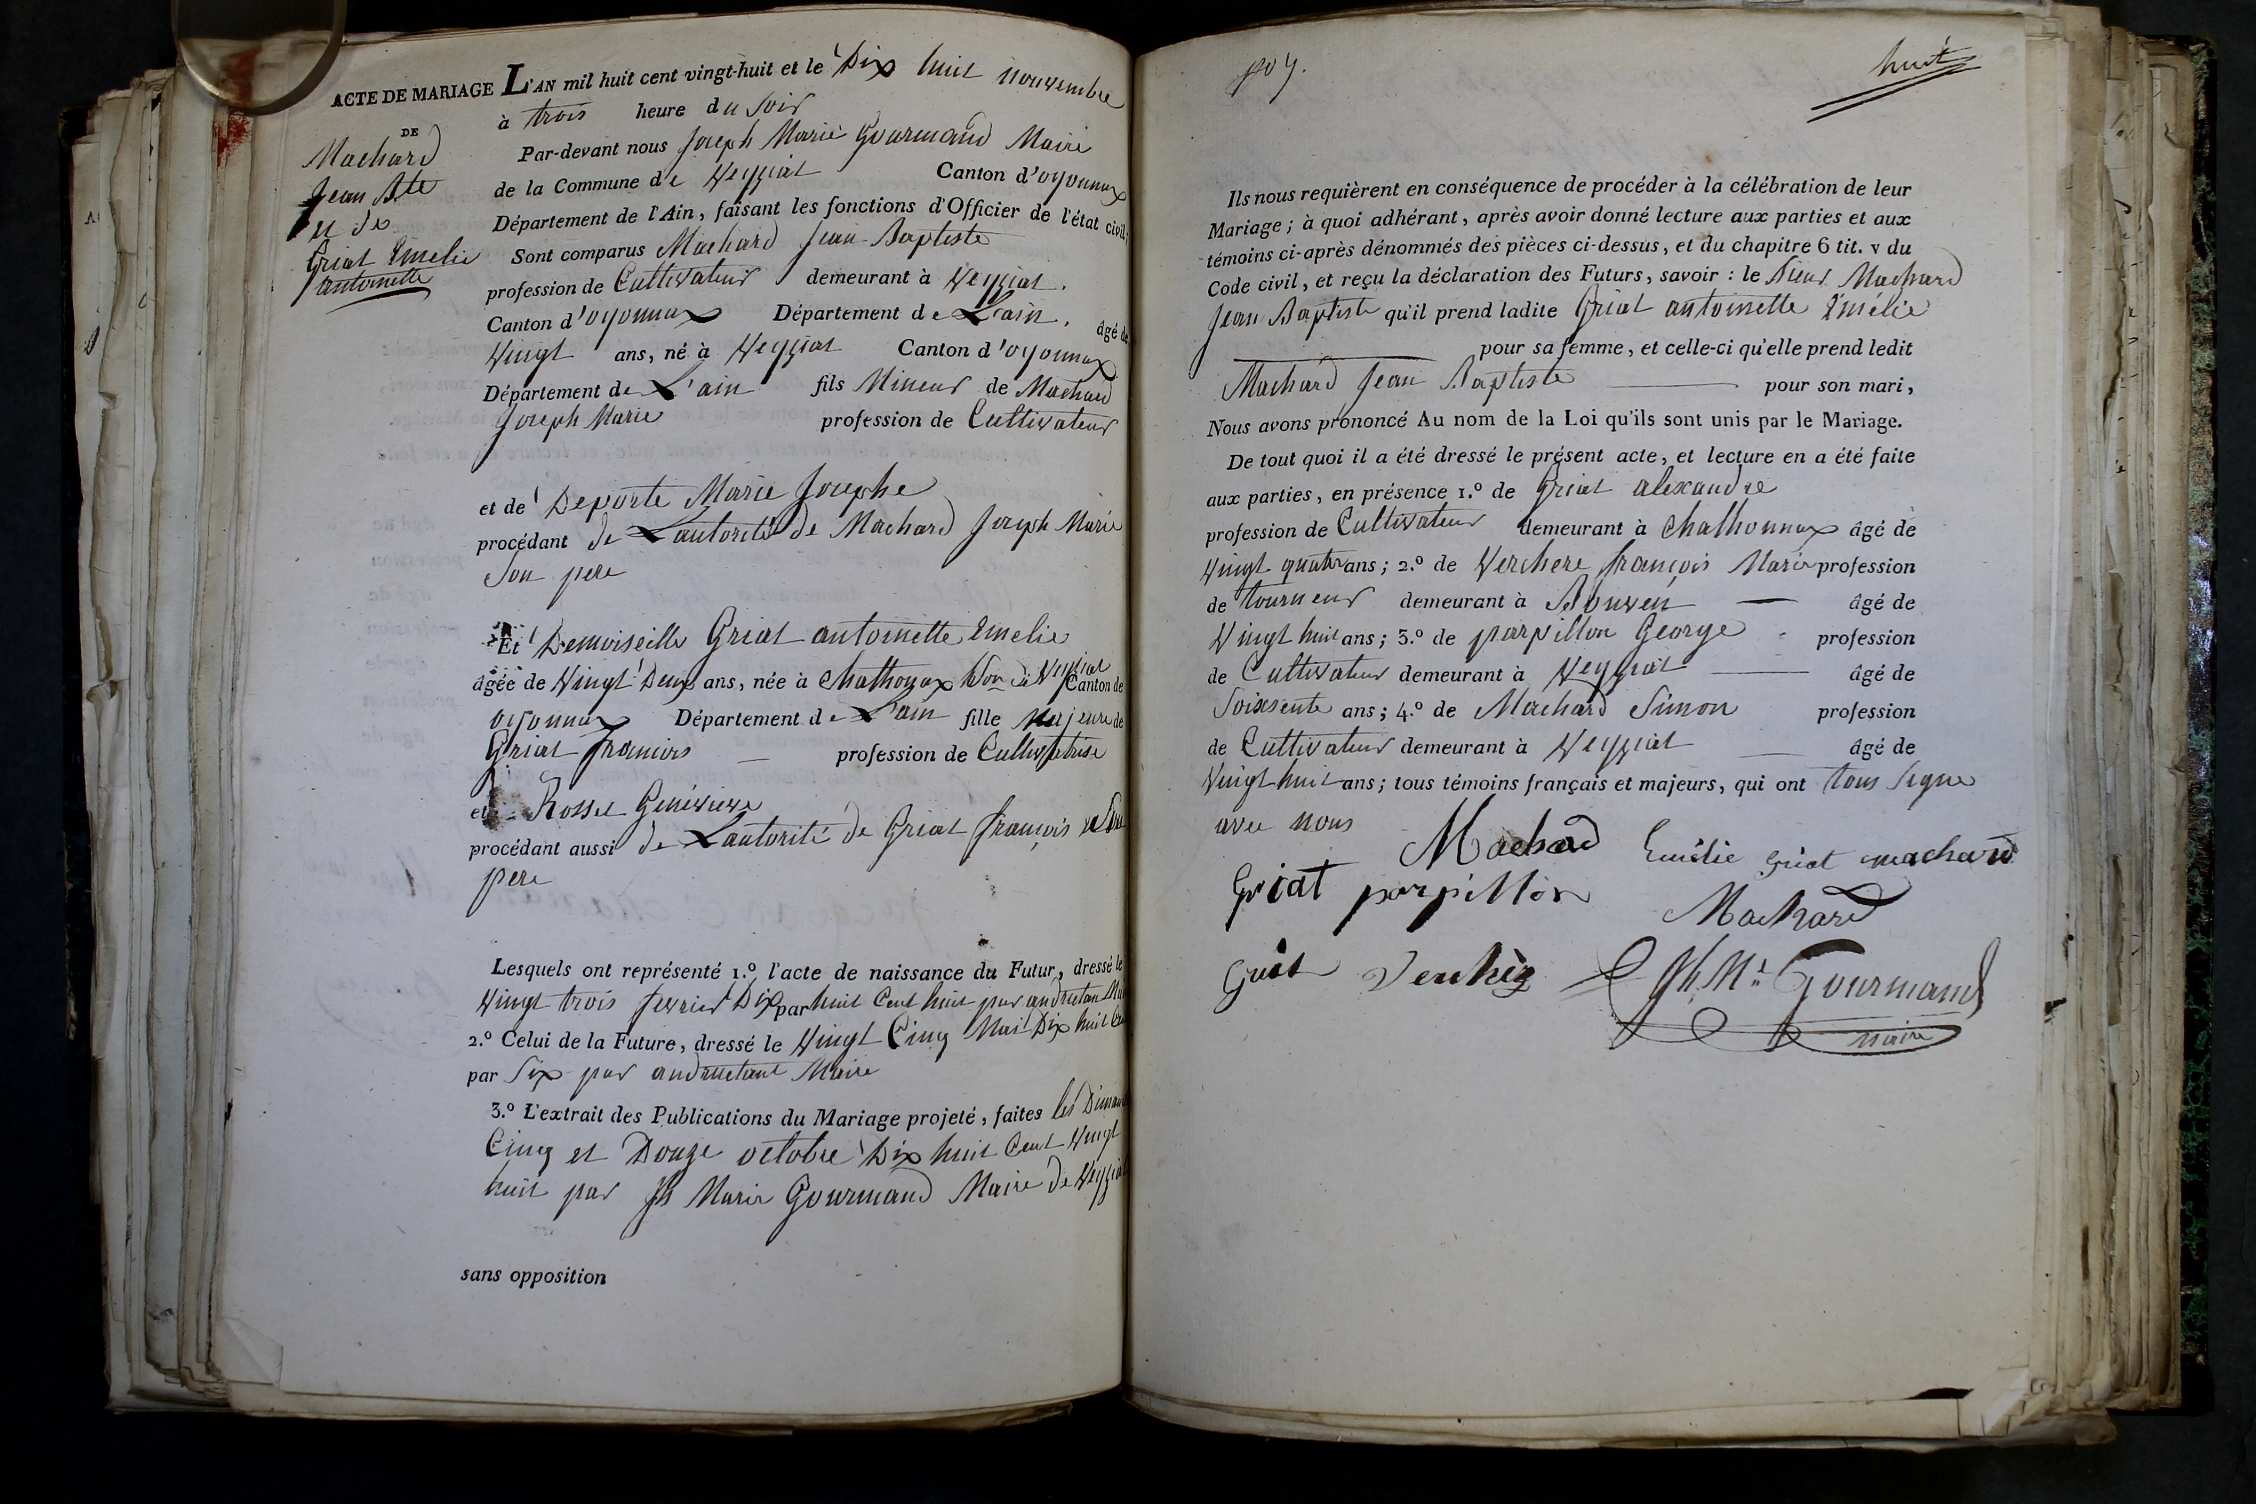 ACTE DE MARIAGE
DE
Machard
Jean Bte
et de
Griat Emelie
antoinette
L'AN mil huit cent vingt-huit et le Dix huit nouvembre
à trois heure du soir
Par-devant nous Joseph Marie Gourmand Maire
de la Commune de Veyziat Canton d'oyonnax
Département de l'Ain, faisant les fonctions d'Officier de l'état civil,
Sont comparus Machard Jean-Baptiste
profession de Cultivateur demeurant à Veyziat.
Canton d'oyonnax Département de L'ain. âgé de
Vingt ans, né à Veyziat Canton d'oyonnax
Département de L'ain fils Mineur de Machard
Joseph Marie profession de Cultivateur
et de Deporte Marie Josephe
procédant de L'autorité de Machard Joseph Marie
Son pere
Et Demoiselle Griat antoinette Emelie
âgée de Vingt Deux ans, née à Chathonax de Veyziat Canton de
oyonnax Département de L'ain fille Majeure de
Griat françois profession de Cultivatrise
et Rosset Genévieve
procédant aussi de L'autorité de Griat françois Son
pere
Lesquels ont représenté 1.º l'acte de naissance du Futur, dressé le
Vingt trois fevrier Dix par huit Cent huit par andruetan
2.º Celui de la Future, dressé le Vingt Cinq Mai Dix huit Cent
par Six par andruetant Maire
3.º L'extrait des Publications du Mariage projeté, faites les
Cinq et Douze octobre Dix huit Cent Vingt
huit par Jh Marie Gourmand Maire de Veyziat
sans opposition
huit
Ils nous requièrent en conséquence de procéder à la célébration de leur
Mariage; à quoi adhérant, après avoir donné lecture aux parties et aux
témoins ci-après dénommés des pièces ci-dessus, et du chapitre 6 tit. v du
Code civil, et reçu la déclaration des Futurs, savoir : le Sieur Machard
Jean Baptiste qu'il prend ladite Griat antoinette Emélie
pour sa femme, et celle-ci qu'elle prend ledit
Machard Jean Baptiste pour son mari,
Nous avons prononcé Au nom de la Loi qu'ils sont unis par le Mariage.
De tout quoi il a été dressé le présent acte, et lecture en a été faite
aux parties, en présence 1.º de Griat alexandre
profession de Cultivateur demeurant à Chathonnax âgé de
Vingt quatre ans; 2.º de Verchere françois Marie profession
de tourneur demeurant à Bouven âgé de
Vingt huit ans; 3.º de parpillon George profession
de Cultivateur demeurant à Veyziat âgé de
Soixsente ans; 4.º de Machard Simon profession
de Cultivateur demeurant à Veyziat âgé de
Vingt huit ans; tous témoins français et majeurs, qui ont tous Signe
avec nous
Machard Emélie Griat machard
Griat parpillon
Machard
Griat
Jh Me Gourmand
maire